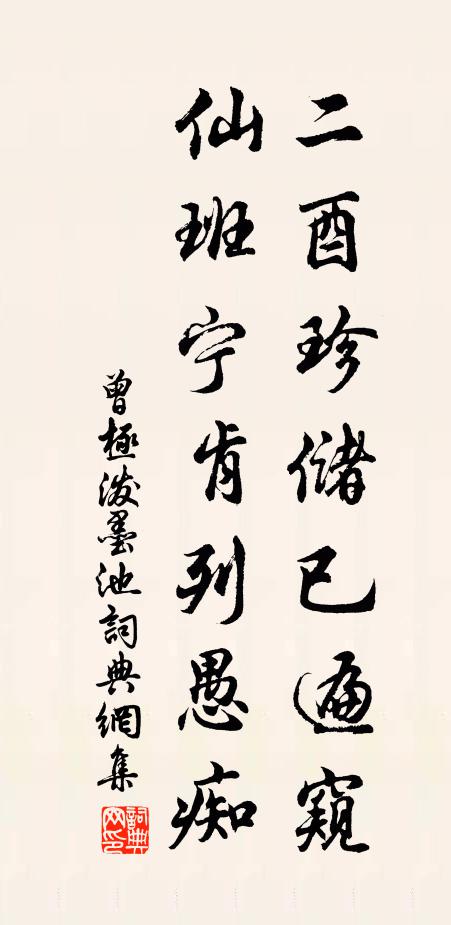 二酉珍儲已遍窺
仙班宁肯列愚痴
曾極泼墨池詞典網集
詞典网印